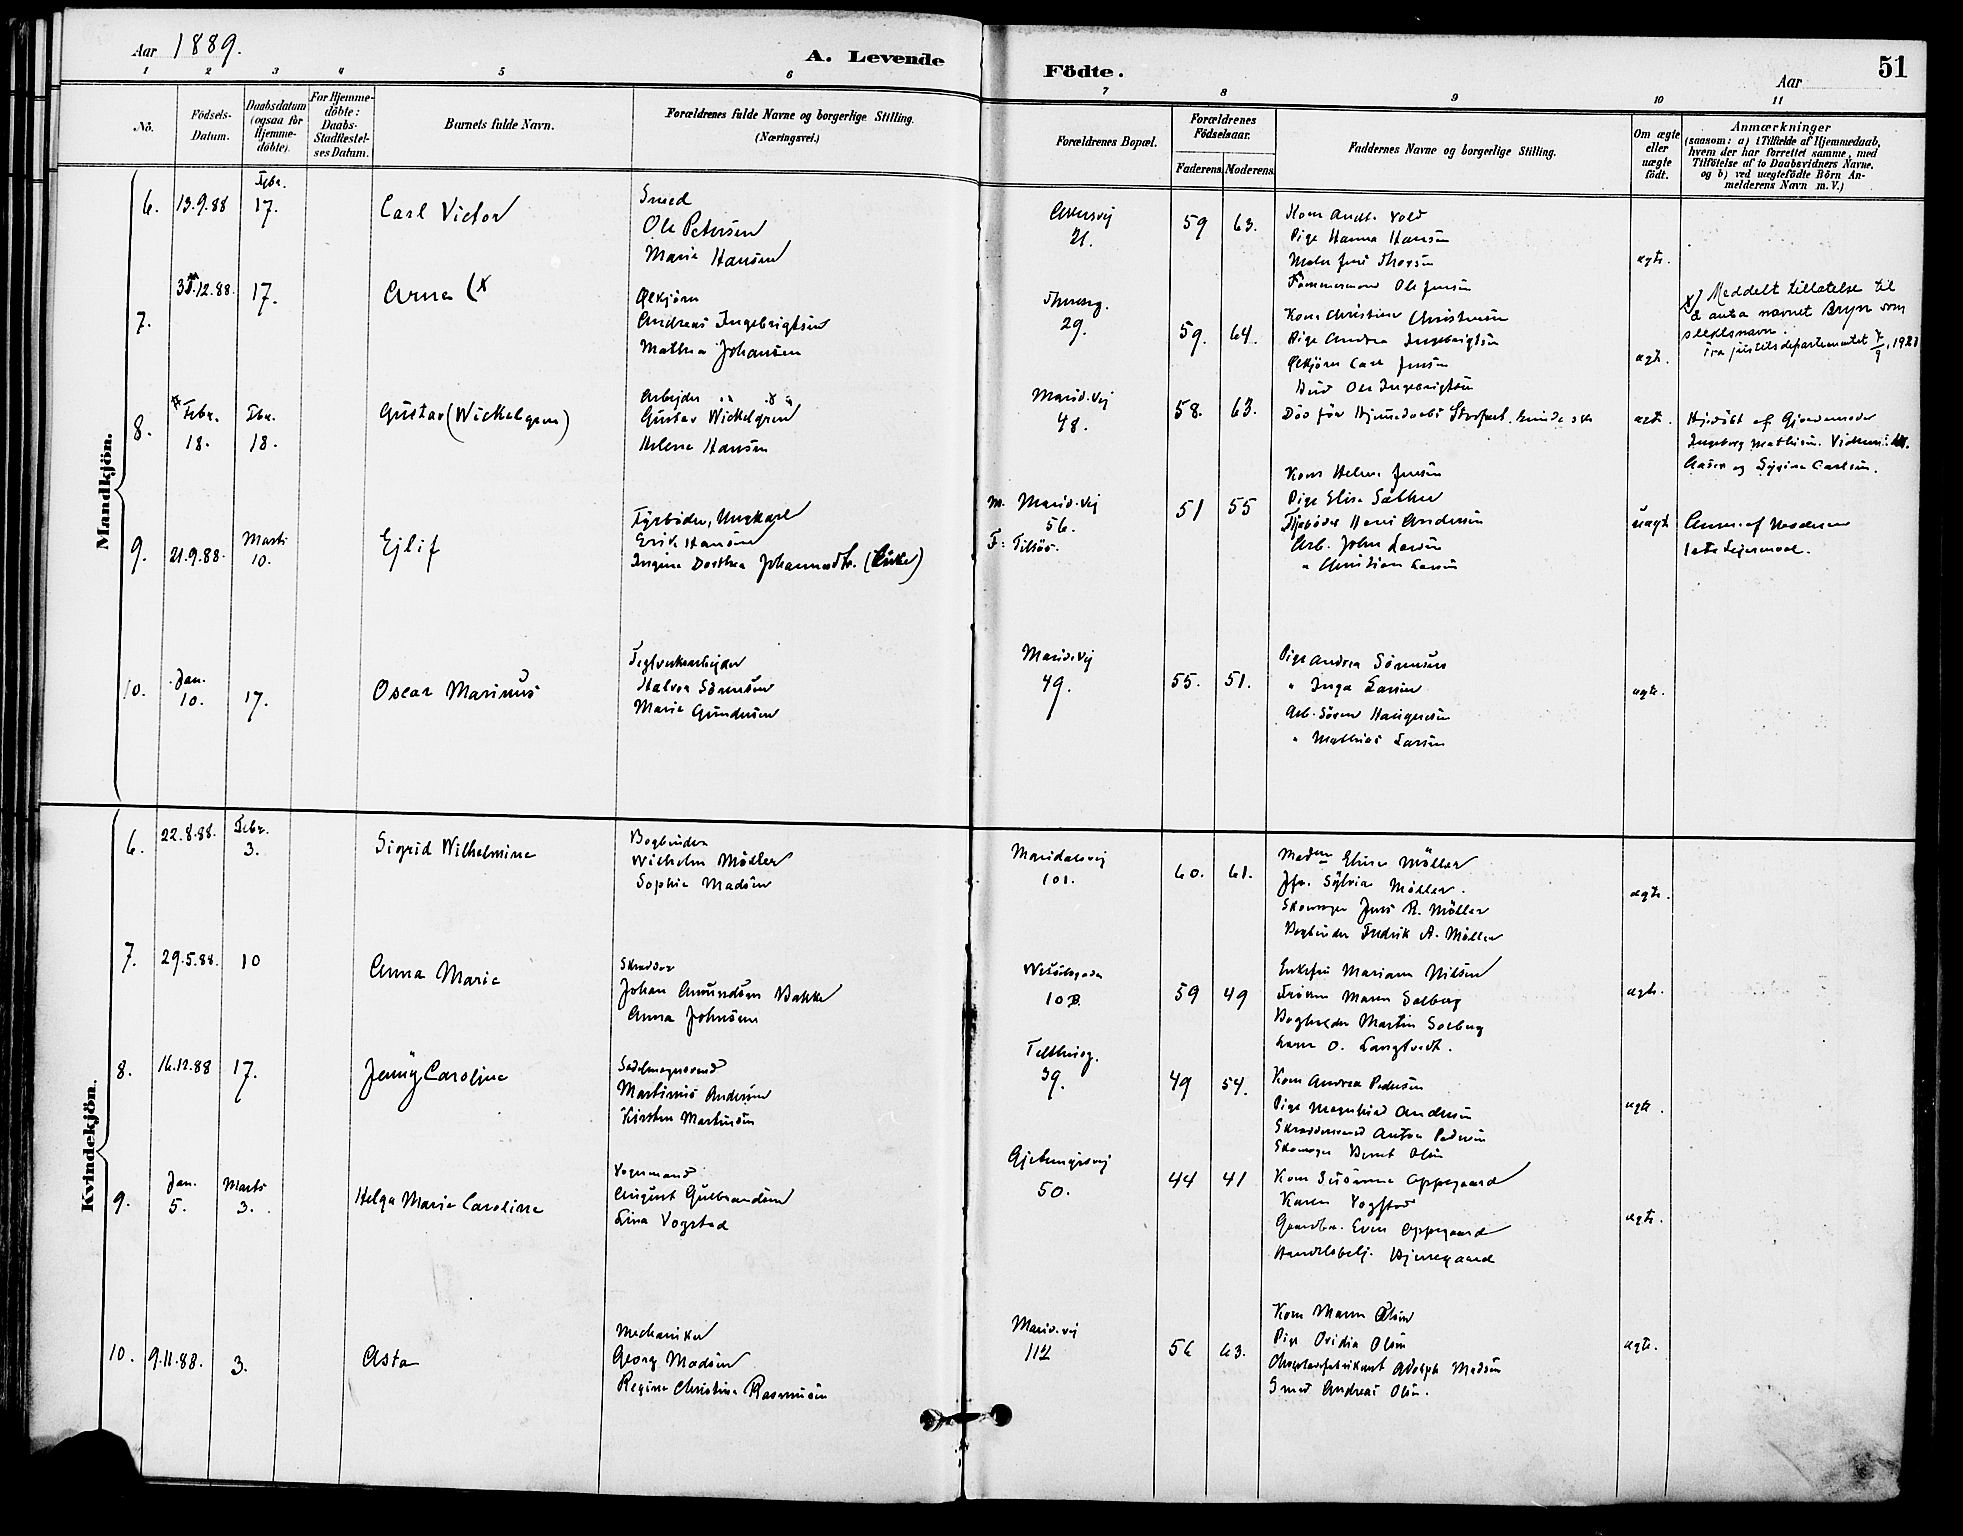 Aar 1889.
A. Levende
Födte.
Aar
51
1 2 3 4 5 6 7 8 9 10 11
No.
Födsels-Datum.
Daabsdatum (ogsaa for Hjemme-döbte).
For Hjemme-döbte: Daabs-Stadfæstel-ses Datum.
Barnets fulde Navn.
Forældrenes fulde Navne og borgerlige Stilling.
(Næringsvei.)
Forældrenes Bopæl.
Forældrenes Födselsaar.
Faderens. Moderens.
Faddernes Navne og borgerlige Stilling.
Om ægte eller uægte födt.
Anmærkninger
(saasom: a) i Tilfælde af Hjemmedaab, hvem der har forrettet samme, med Tilföielse af to Daabsvidners Navne, og b) ved uægtefödte Börn An-melderens Navn m. V.)
Mandkjön.
6. 13.9.88 Febr. 17. Carl Victor
Smed
Ole Petersen
Marie Hansen
Akersvej
21.
59 63.
Kone Andr. Vold
Pige Hanna Hansen
Maler Jens Thorsen
Tömmermand Ole Jensen
ægte.
7. 31.12.88. 17. Arne (x
Ölkjörer
Andreas Ingebrigtsen
Mathea Johansen
29.
59. 64.
Kone Christine Christensen
Pige Andrea Ingebrigtsen
Ölkjörer Carl Jensen
Ole Ingebrigtsen
ægte.
x) Meddelt tillatelse til
å anta navnet Bryn som
slektsnavn.
fra justitsdepartementet
8. Febr. 18. Febr. 18. Gustav (Wickelgren)
Arbejder
Gustav Wickelgren
Helene Hansen
Marid.vej
48.
58. 63.
Död för
ægte.
Hjdöbt af Gjordemoder
Ingeborg Mathisen.
og Carlsen.
9. 21.9.88. Marts 10. Ejlif
Fyrböder, Ungkarl
Erik Hansen
Ingine Dorthea
M. Marid.vej
56.
F:
51 55
Kone Helene Jensen
Pige Elise Sæther
Fyrböder Hans Andersen
Arb. John Larsen
" Christian Larsen
uægt
Anm. af Moderen
1ste Lejermaal.
10. Jan. 10. 17. Oscar Marinus
Teglverksarbejder
Halvor Sörensen
Marie Gundersen
Marid.vej
49.
55. 51.
Pige Andrea Sörensen
" Inga Larsen
Arb. Sören
" Mathias Larsen
ægte.
Kvindekjön.
6. 22.8.88. Febr. 3. Sigrid Wilhelmine
Bogbinder
Wilhelm Möller
Sophie Madsen
Maridalsvej
101.
60. 61.
Madam Elise Möller
Jfr. Sylvia Möller.
Skomager Jens R. Möller
Bogbinder Fredrik A. Möller
ægte.
7. 29.5.88. 10 Anna Marie
Skrædder
Johan Amundsen Bakke
Anna Johnsen
10 B.
59 49
Enkefru Mariane Nilsen
Fröken Maren Solberg
Bogholder Martin Solberg
O. Langtvedt.
ægte.
8. 16.12.88 17. Jenny Caroline
Sadelmagersvend
Martinius Andersen
Kirsten Martinsen
Telthusg.
39.
49 54.
Kone Andrea Pedersen
Pige Magnhild Andersen
Skræddersvend Anton Pedersen
Skomager Bernt Olsen
ægte.
9. Jan. 5. Marts 3. Helga Marie Caroline
Vognmand
August Gulbrandsen
Lina Vogstad
Gjetemyrsvej
50.
44 41
Kone Susanne Oppegaard
Karen Vogstad
Gaardbr. Even Oppegaard
Handelsbetj.
ægte.
10. 9.11.88. 3. Asta
Mechaniker
Georg Madsen
Regine Christine Rasmussen
Marid.vej
112
56 63.
Kone Maren Olsen
Pige Ovidia Olsen
Adolph Madsen
Smed Andreas Olsen.
ægte.